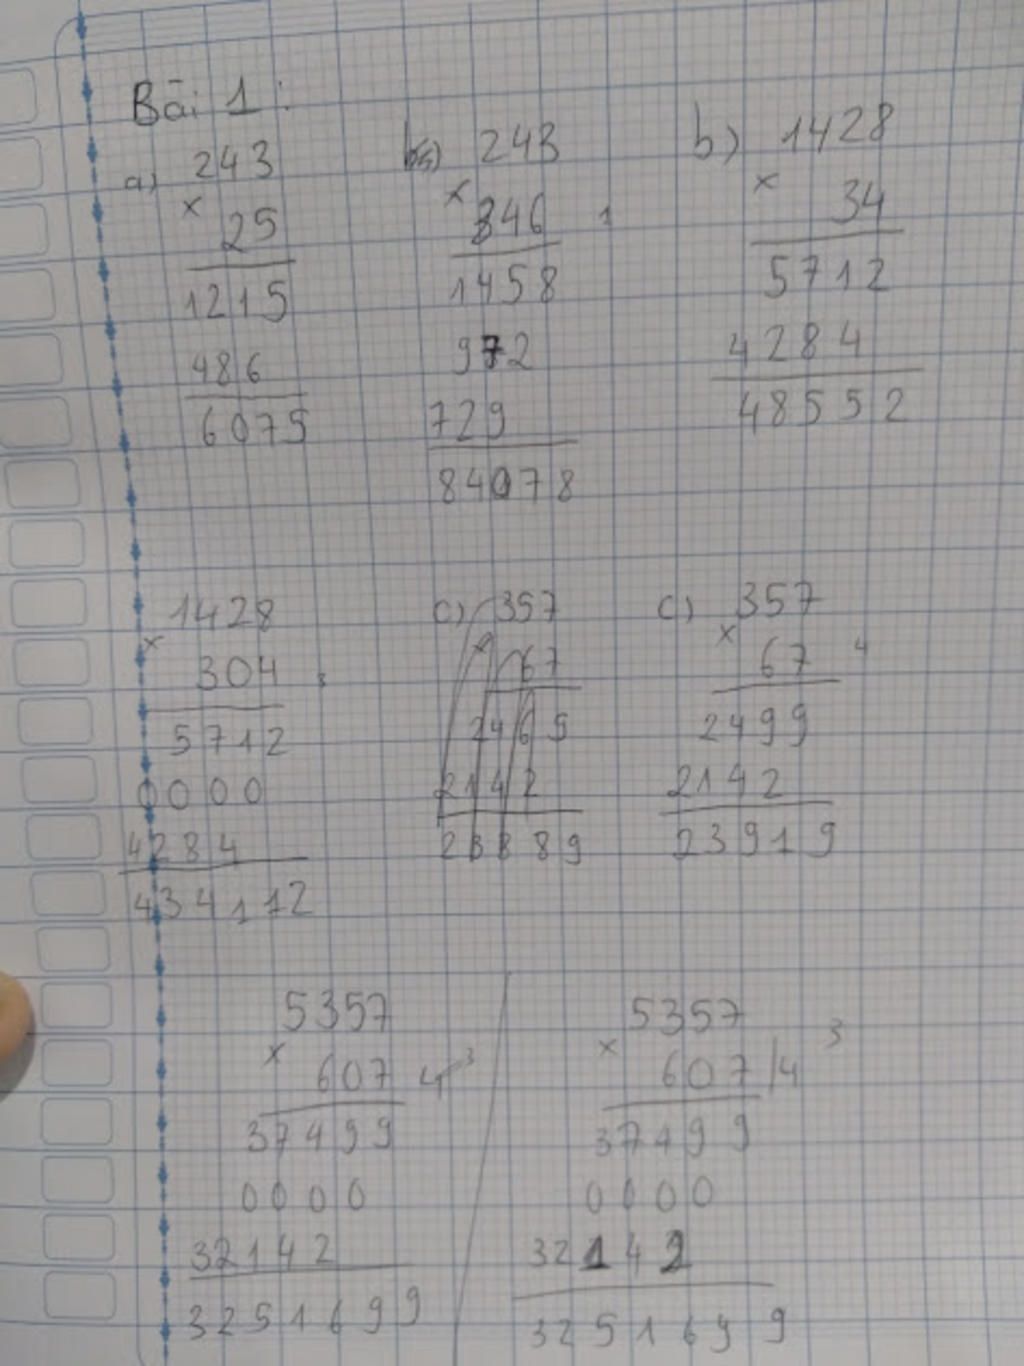 Bài 1 :
a) 243
x
25
1215
486
6075
243
x
346 1
1458
972
729
84078
b) 1428
x
34
5712
4284
48552
1428
x
304
5712
0000
4284
434112
c) 357
67
2142
c) 357
x
67 4
2499
2142
23919
5357
x
607 4 3
37499
0000
32142
3251699
5357 3
x
607 4
37499
0000
32142
3251699